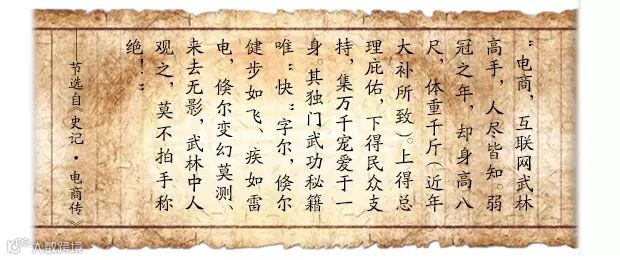 “电商，互联网武林
高手，人尽皆知。弱
冠之年，却身高八
尺，体重千斤（近年
大补所致）。上得总
理庇佑，下得民众支
持，集万千宠爱于一
身。其独门武功秘籍
唯“快”字尔，倏尔
健步如飞、疾如雷
电，倏尔变幻莫测、
来去无影，武林中人
观之，莫不拍手称
绝！”
——节选自《史记·电商传》
大数跨境